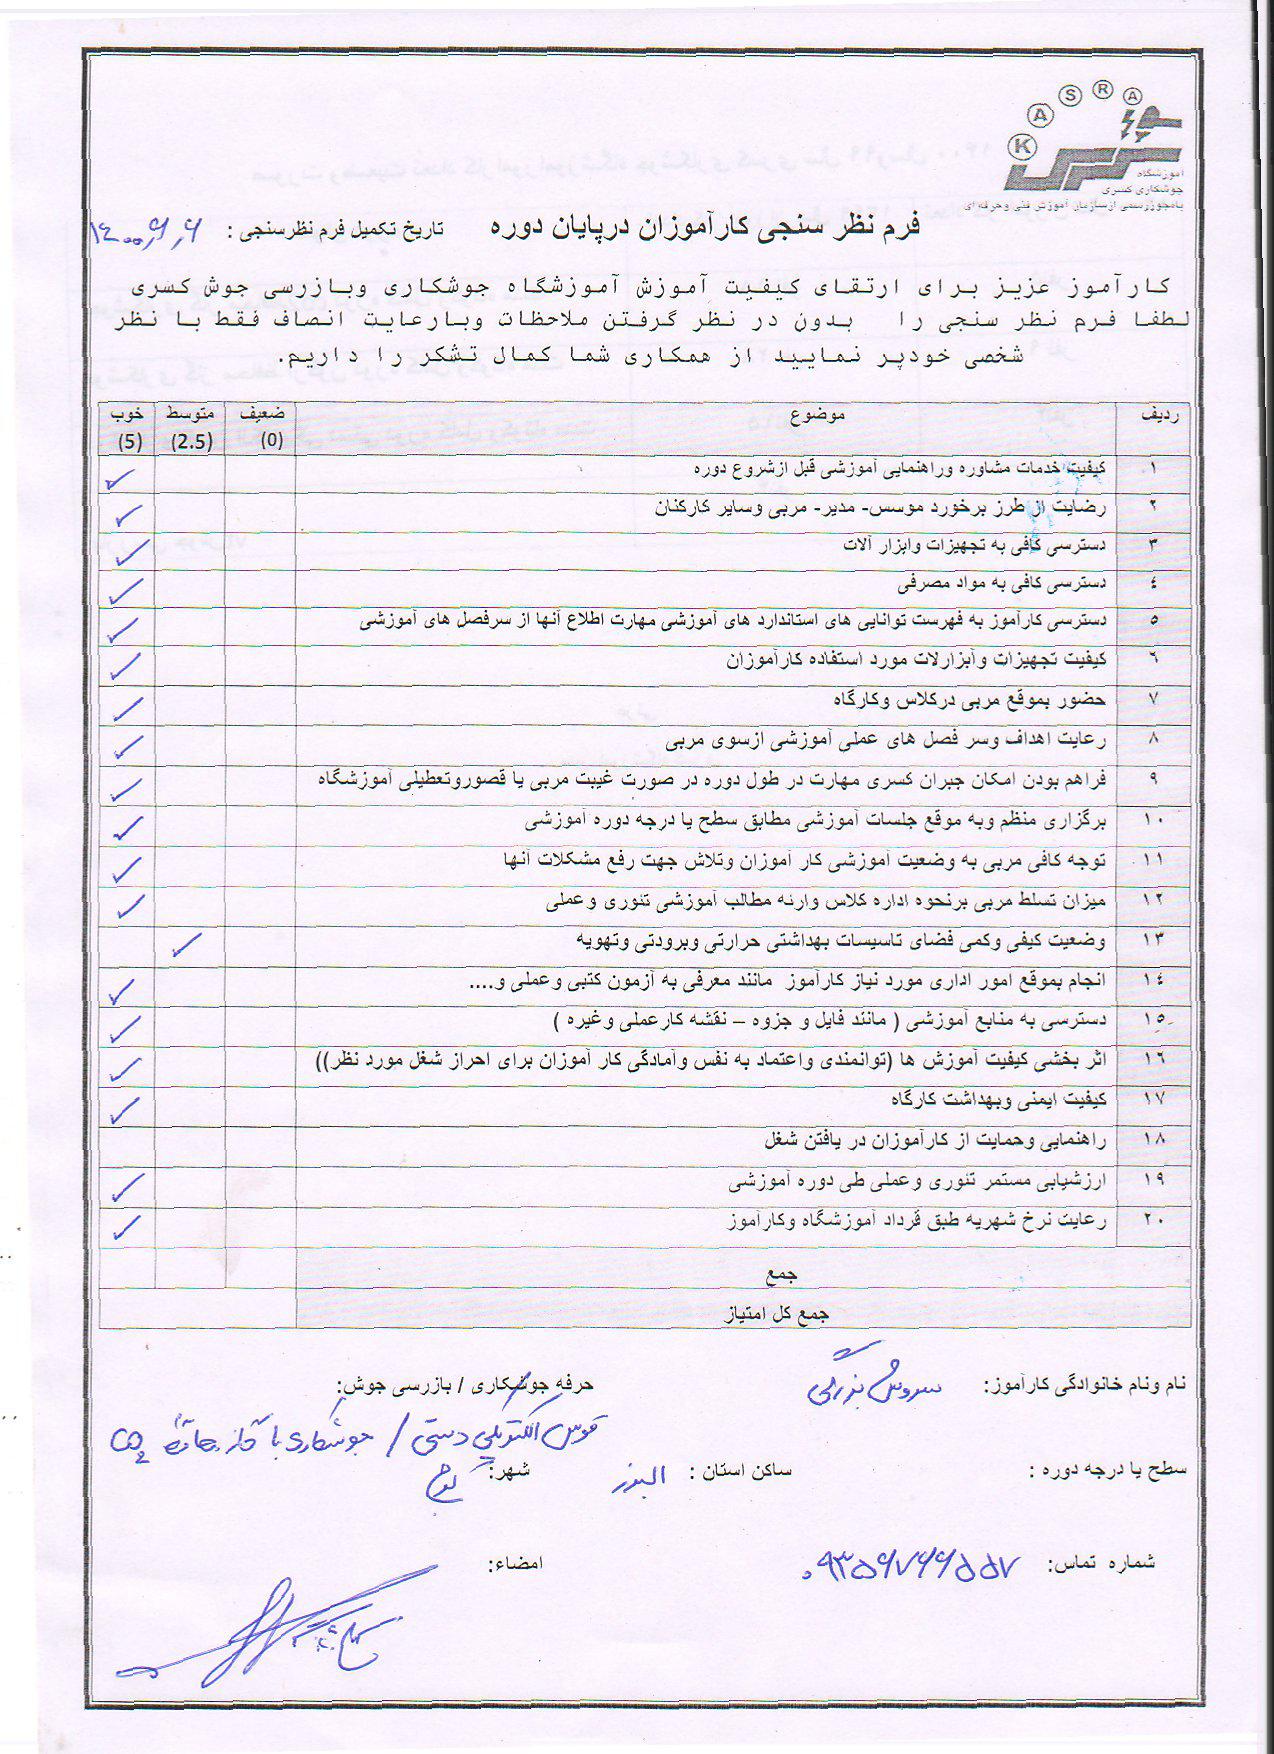 K A S R A
آموزشگاه
جوشکاری کسری
بامجوزرسمی ازسازمان آموزش فنی وحرفه ای
فرم نظر سنجی کارآموزان درپایان دوره تاریخ تکمیل فرم نظرسنجی : ۱۴۰۰,۶,۶
کارآموز عزیز برای ارتقای کیفیت آموزش آموزشگاه جوشکاری وبازرسی جوش کسری
لطفا فرم نظر سنجی را بدون در نظر گرفتن ملاحظات وبارعایت انصاف فقط با نظر
شخصی خودپر نمایید از همکاری شما کمال تشکر را داریم.
ردیف موضوع ضعیف (0) متوسط (2.5) خوب (5)
۱ کیفیت خدمات مشاوره وراهنمایی آموزشی قبل ازشروع دوره ✓
۲ رضایت از طرز برخورد موسس- مدیر- مربی وسایر کارکنان ✓
۳ دسترسی کافی به تجهیزات وابزار آلات ✓
٤ دسترسی کافی به مواد مصرفی ✓
٥ دسترسی کارآموز به فهرست توانایی های استاندارد های آموزشی مهارت اطلاع آنها از سرفصل های آموزشی ✓
٦ کیفیت تجهیزات وآبزارلات مورد استفاده کارآموزان ✓
۷ حضور بموقع مربی درکلاس وکارگاه ✓
۸ رعایت اهداف وسر فصل های عملی آموزشی ازسوی مربی ✓
۹ فراهم بودن امکان جبران کسری مهارت در طول دوره در صورت غیبت مربی یا قصوروتعطیلی آموزشگاه ✓
۱۰ برگزاری منظم وبه موقع جلسات آموزشی مطابق سطح یا درجه دوره آموزشی ✓
۱۱ توجه کافی مربی به وضعیت آموزشی کار آموزان وتلاش جهت رفع مشکلات آنها ✓
۱۲ میزان تسلط مربی برنحوه اداره کلاس وارئه مطالب آموزشی تئوری وعملی ✓
۱۳ وضعیت کیفی وکمی فضای تاسیسات بهداشتی حرارتی وبرودتی وتهویه ✓
۱٤ انجام بموقع امور اداری مورد نیاز کارآموز مانند معرفی به آزمون کتبی وعملی و.... ✓
۱٥ دسترسی به منابع آموزشی ( مانند فایل و جزوه – نقشه کارعملی وغیره ) ✓
۱٦ اثر بخشی کیفیت آموزش ها (توانمندی واعتماد به نفس وآمادگی کار آموزان برای احراز شغل مورد نظر)) ✓
۱۷ کیفیت ایمنی وبهداشت کارگاه ✓
۱۸ راهنمایی وحمایت از کارآموزان در یافتن شغل
۱۹ ارزشیابی مستمر تئوری وعملی طی دوره آموزشی ✓
۲۰ رعایت نرخ شهریه طبق قرداد آموزشگاه وکارآموز ✓
جمع
جمع کل امتیاز
نام ونام خانوادگی کارآموز: سروش بزرگی حرفه جوشکاری / بازرسی جوش:
قوس الکتریکی دستی / جوشکاری با گاز محافظ CO2
سطح یا درجه دوره : ساکن استان : البرز شهر: کرج
شماره تماس: ۰۹۳۵۶۷۶۶۵۵۷ امضاء: